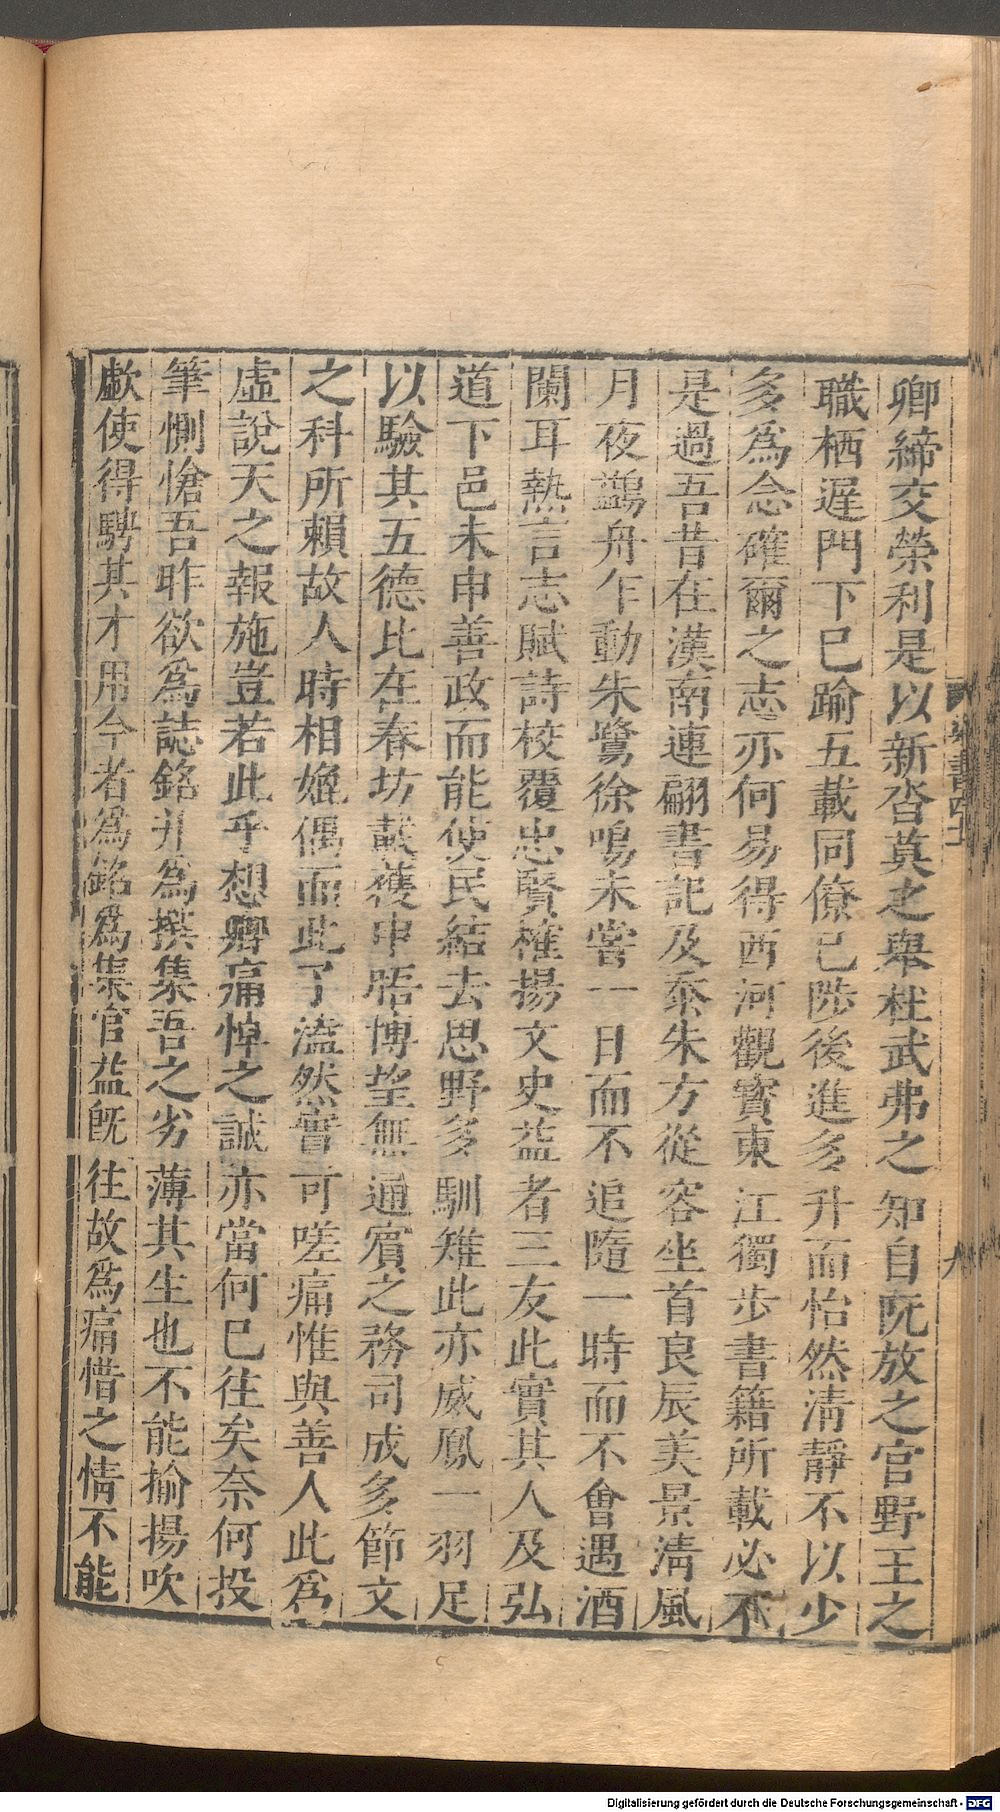 卿締交榮利是以新沓莫之舉杜武弗之知自阮放之官野王之
職栖遲門下已踰五載同僚已陟後進多升而怡然清靜不以少
多爲念確爾之志亦何易得西河觀寳東江獨步書籍所載必不
是過吾昔在漢南連翩書記及忝朱方從容坐首良辰美景清風
月夜鷁舟乍動朱鷺徐鳴未嘗一日而不追隨一時而不會遇酒
闌耳熱言志賦詩校覆忠賢榷揚文史益者三友此實其人及弘
道下邑未申善政而能使民結去思野多馴雉此亦威鳳一羽足
以驗其五德比在春坊載獲申晤博望無通賓之務司成多節文
之科所賴故人時相媲偶而此子溘然實可嗟痛惟與善人此爲
虛說天之報施豈若此乎想卿痛悼之誠亦當何已往矣奈何投
筆惻愴吾昨欲爲誌銘并爲撰集吾之劣薄其生也不能揄揚吹
歔使得騁其才用今者爲銘爲集官益旣往故爲痛惜之情不能
Digitalisierung gefördert durch die Deutsche Forschungsgemeinschaft - DFG